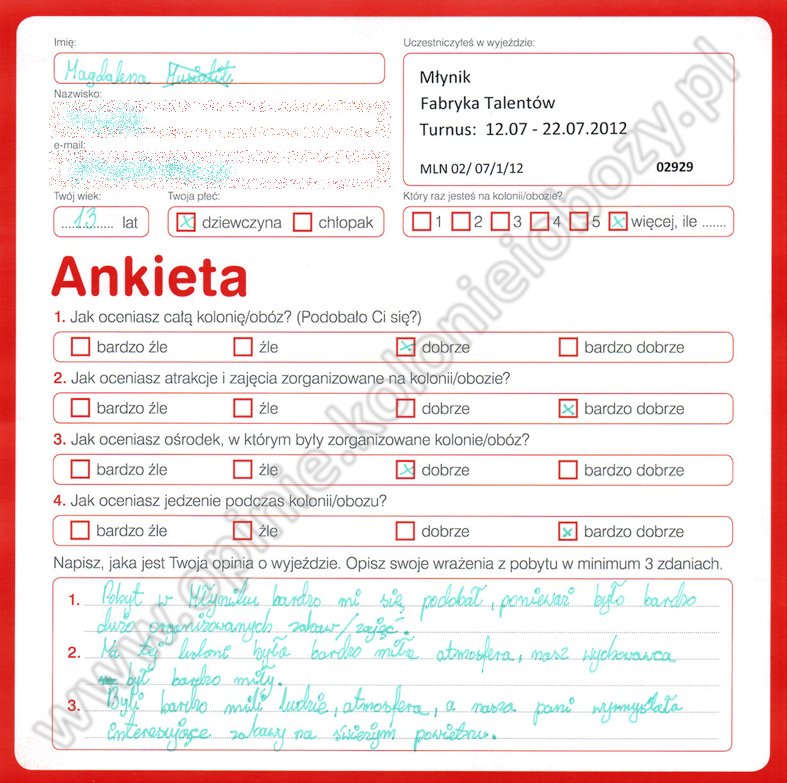 Imię:
Magdalena
Nazwisko:
e-mail:
Twój wiek:
13 lat
Twoja płeć:
dziewczyna chłopak
Uczestniczyłeś w wyjeździe:
Młynik
Fabryka Talentów
Turnus: 12.07 - 22.07.2012
MLN 02/ 07/1/12 02929
Który raz jesteś na kolonii/obozie?
1 2 3 4 5 więcej, ile .......
Ankieta
1. Jak oceniasz całą kolonię/obóz? (Podobało Ci się?)
bardzo źle źle dobrze bardzo dobrze
2. Jak oceniasz atrakcje i zajęcia zorganizowane na kolonii/obozie?
bardzo źle źle dobrze bardzo dobrze
3. Jak oceniasz ośrodek, w którym były zorganizowane kolonie/obóz?
bardzo źle źle dobrze bardzo dobrze
4. Jak oceniasz jedzenie podczas kolonii/obozu?
bardzo źle źle dobrze bardzo dobrze
Napisz, jaka jest Twoja opinia o wyjeździe. Opisz swoje wrażenia z pobytu w minimum 3 zdaniach.
1. Pobyt w Młyniku bardzo mi się podobał, ponieważ było bardzo
dużo organizowanych zabaw/zajęć.
2. Na tej koloni była bardzo miła atmosfera, nasz wychowawca
był bardzo miły.
3. Byli bardzo mili ludzie, atmosfera, a nasza pani wymyślała
interesujące zabawy na świeżym powietrzu.
www.opinie.kolonieiobozy.pl